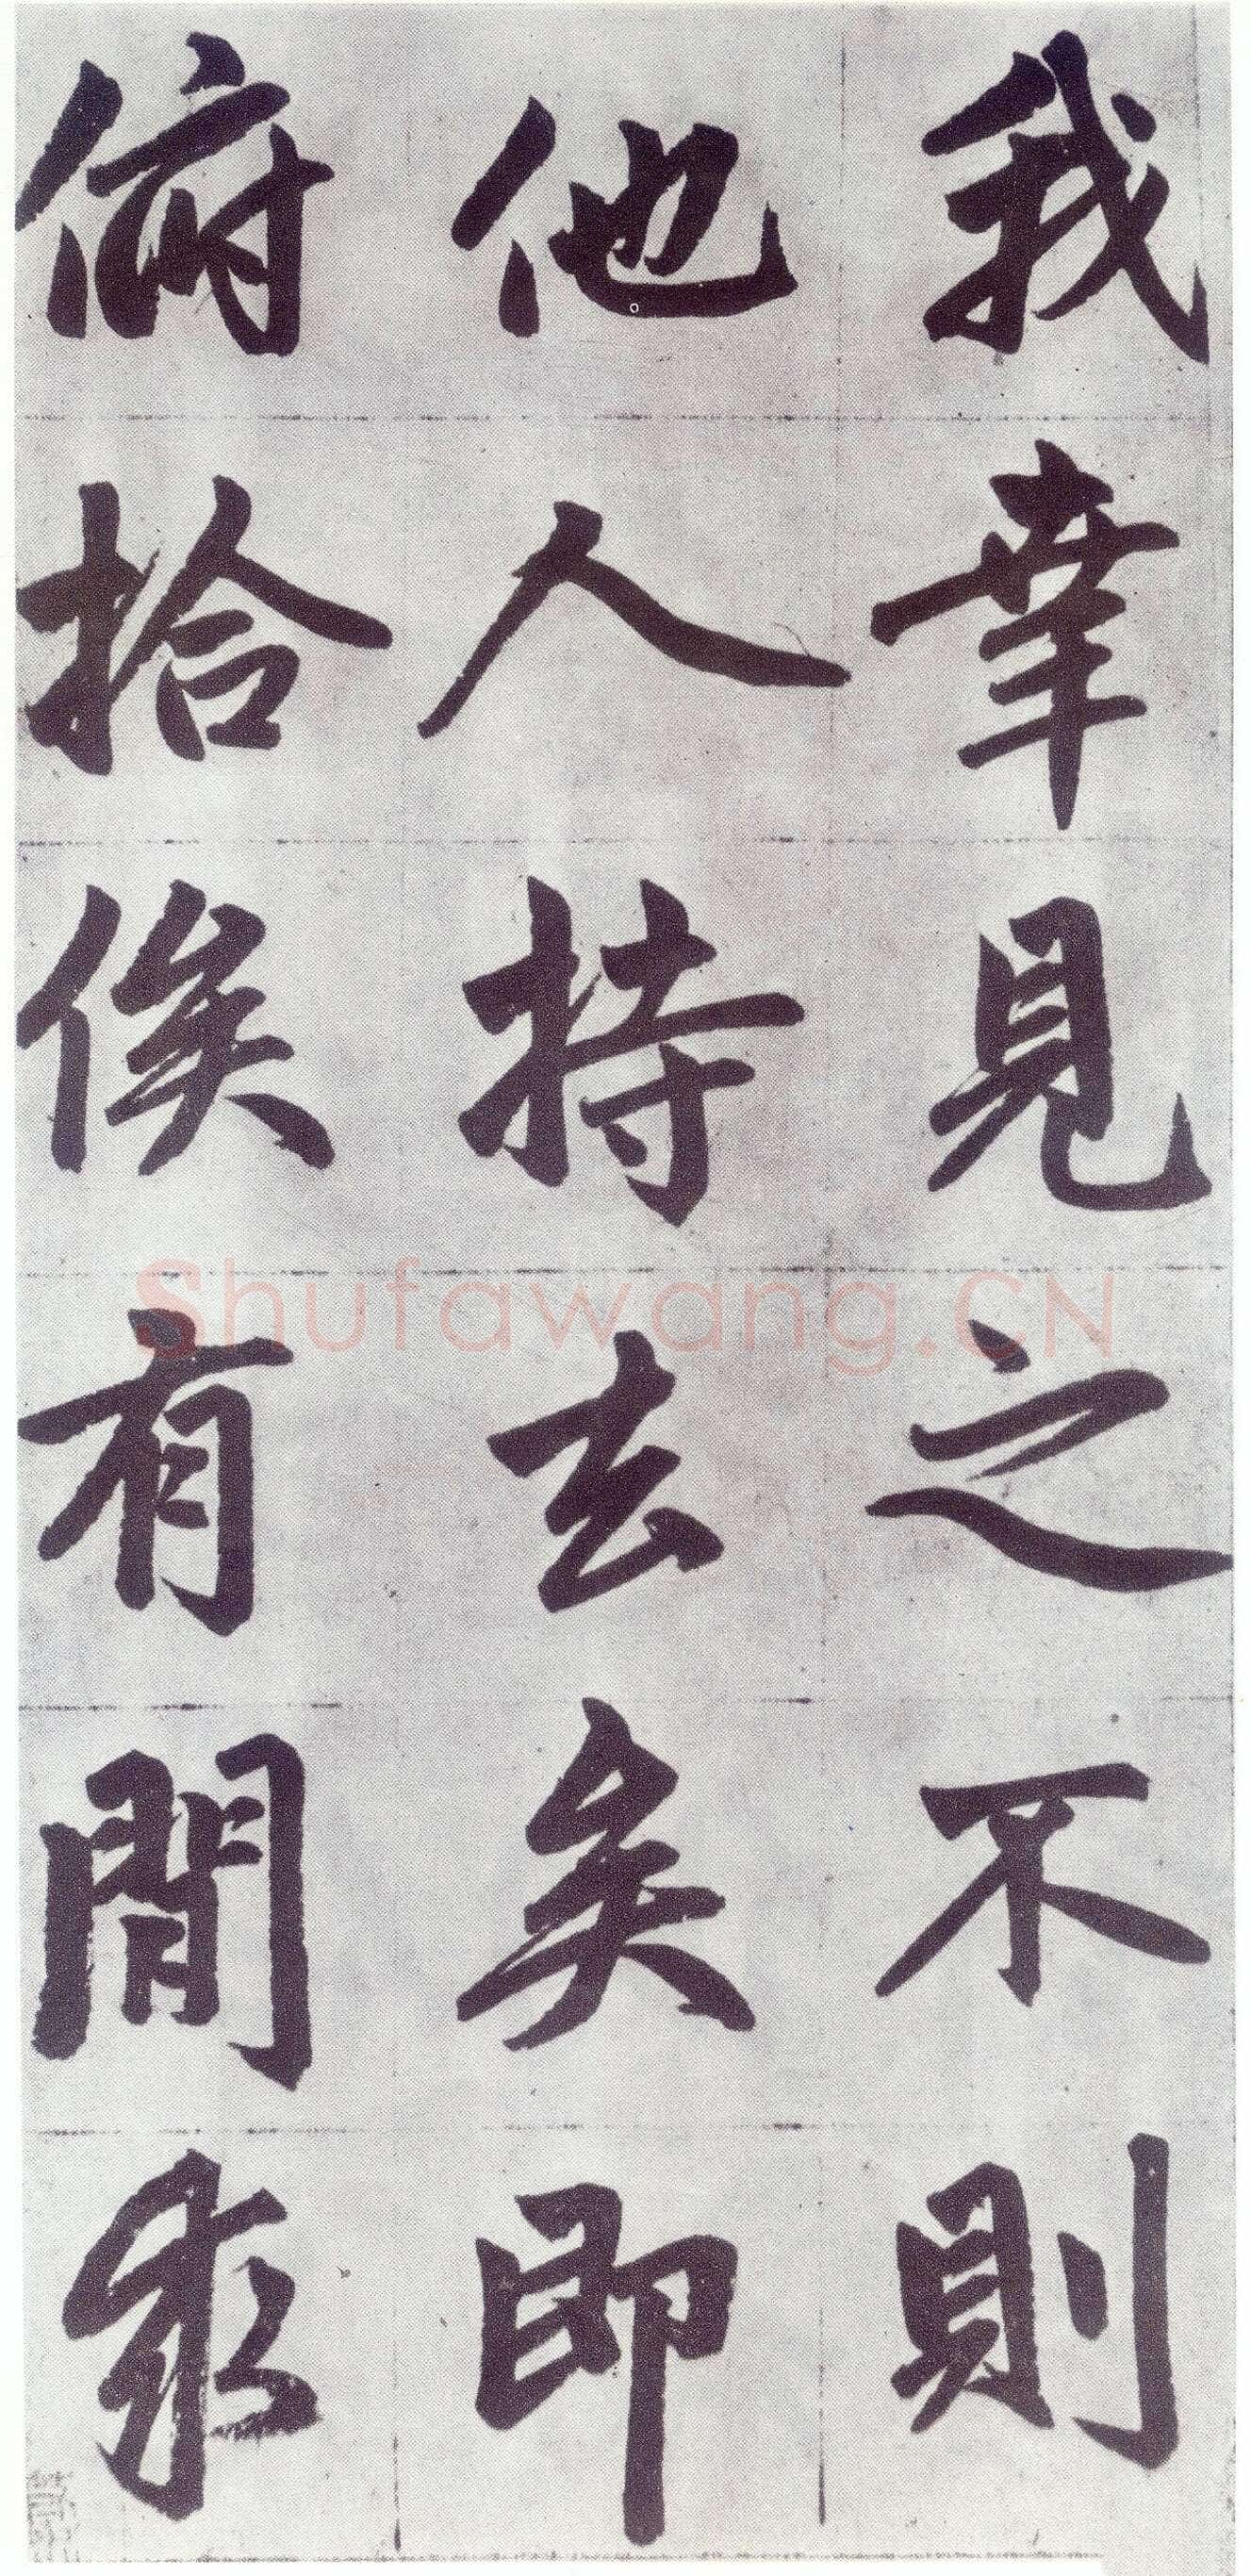 我幸見之不則
他人持去矣即
俯拾俟有閒
Shufawang.CN